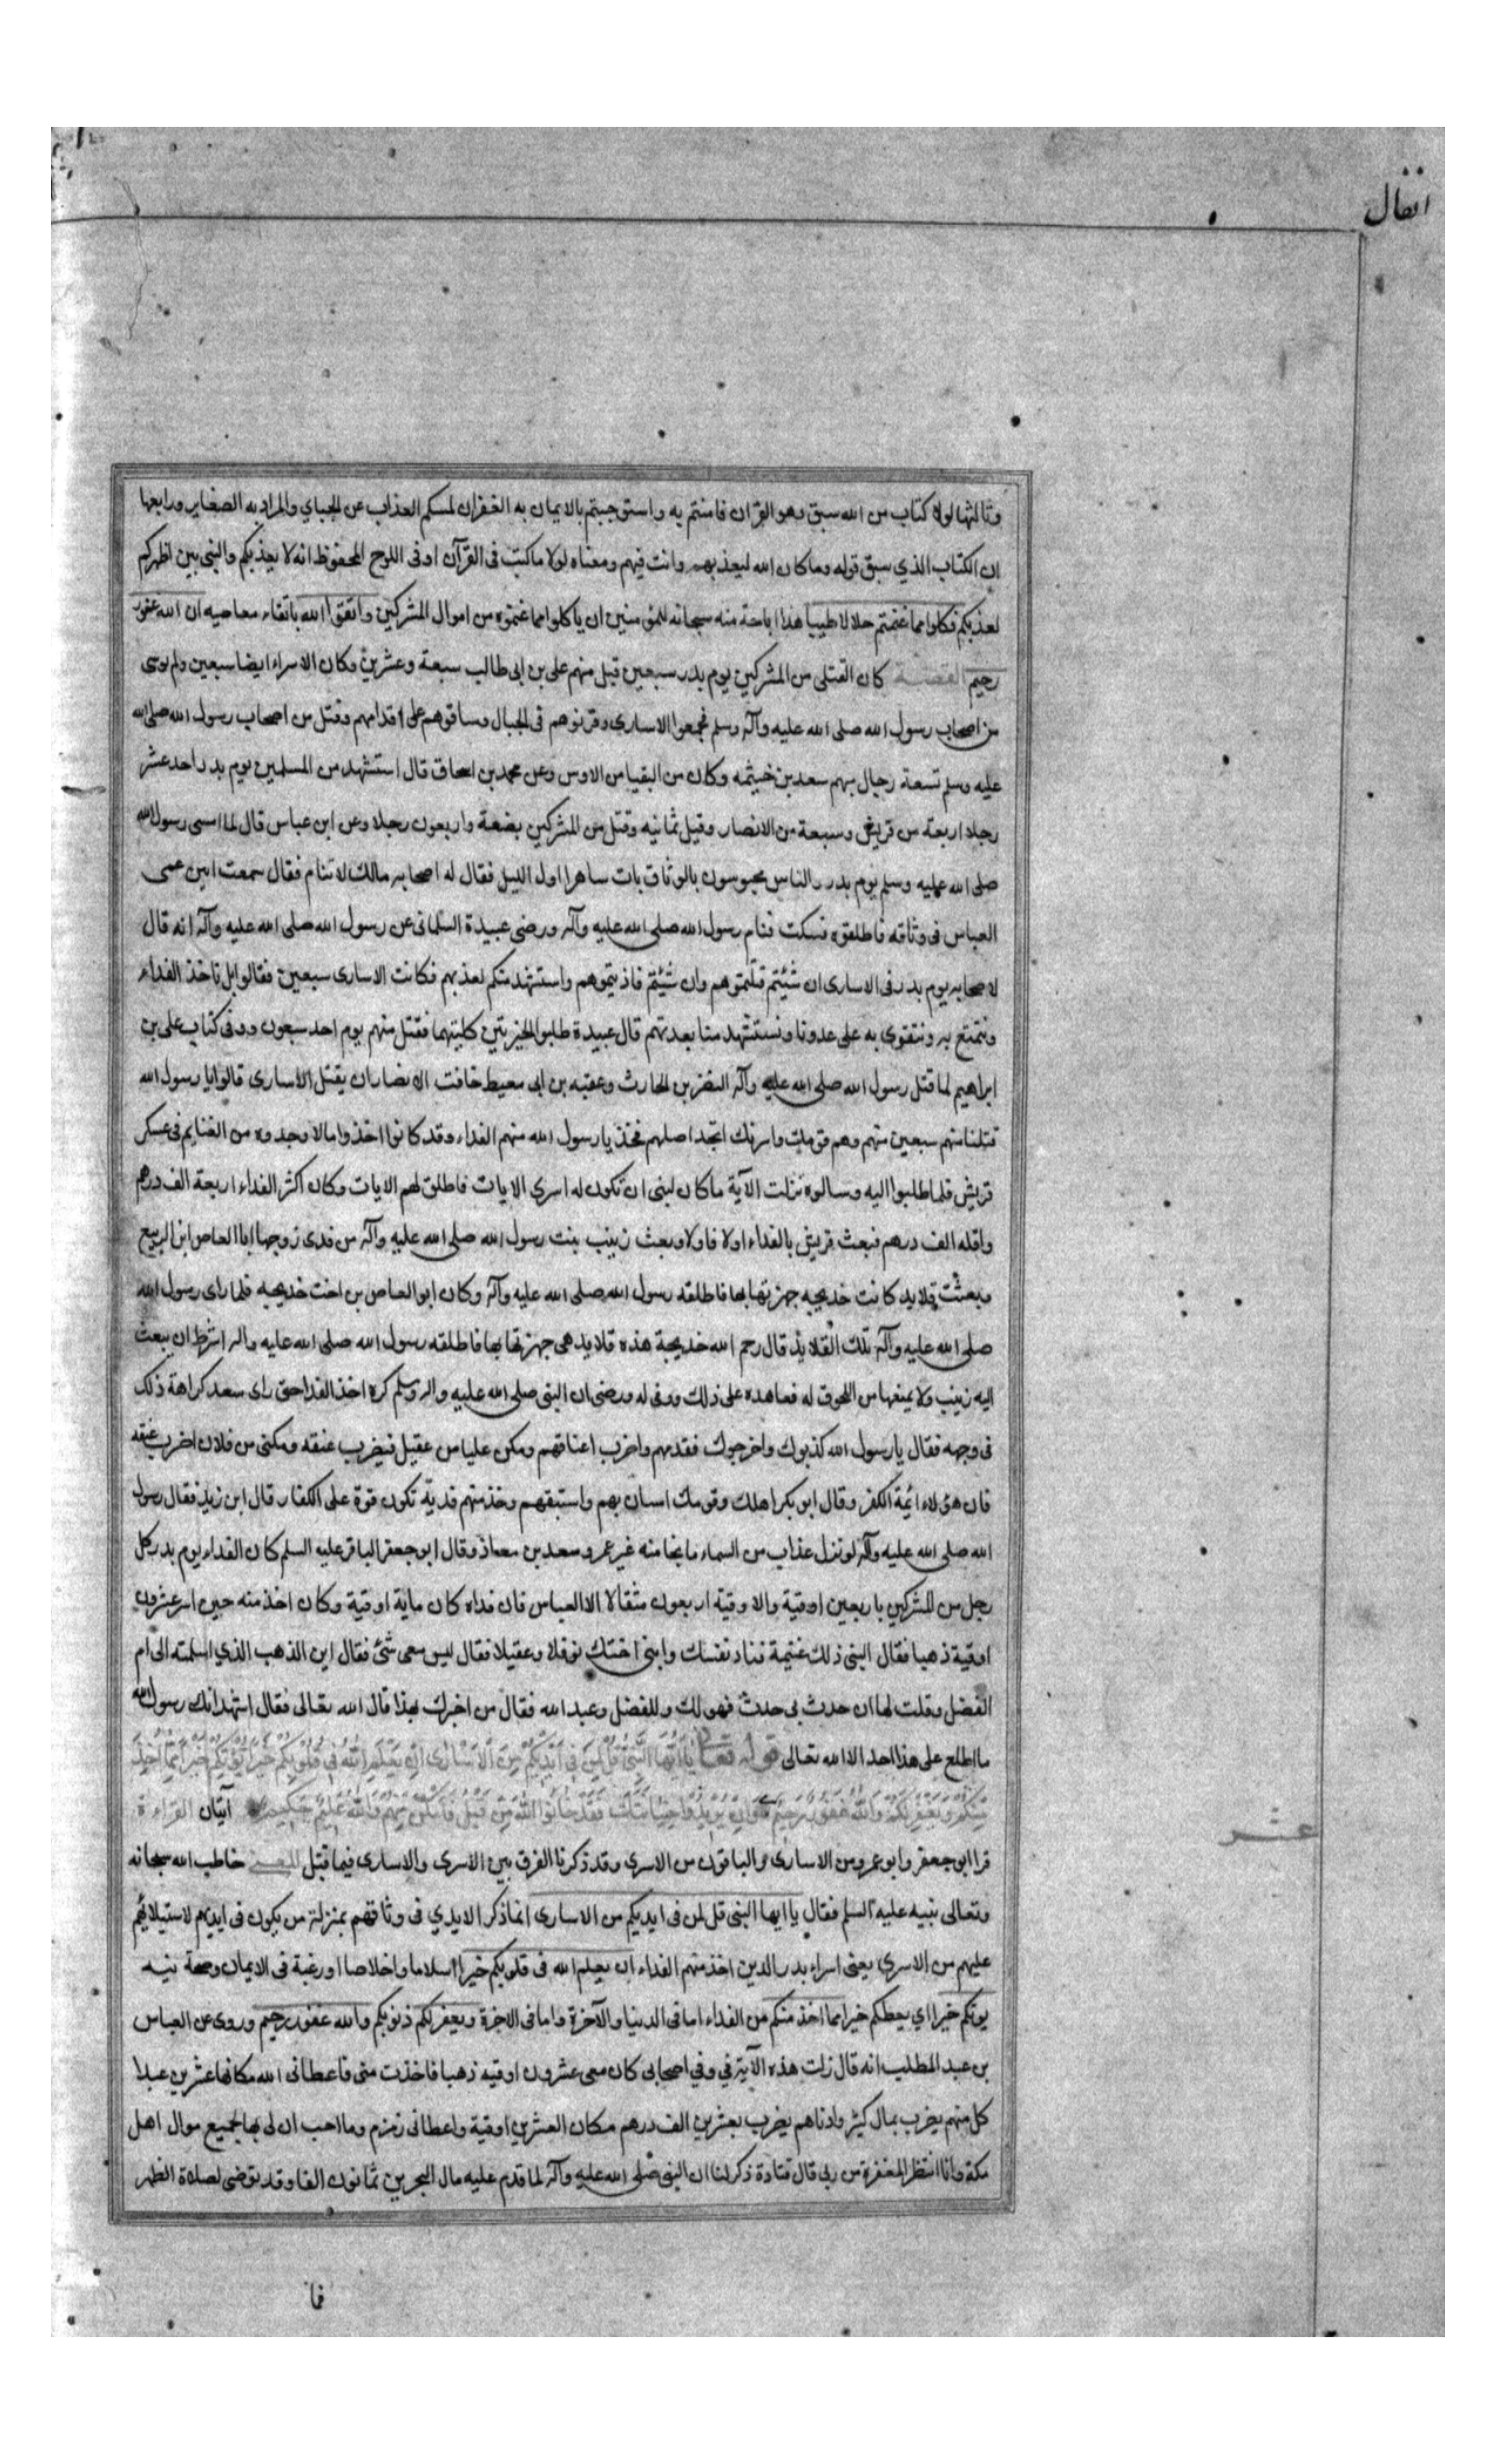 انفال
وثالثها لولا كتاب من الله سبق وهو القران فامنتم به واستوجبتم بالايمان به الغفران لمسكم العذاب عن الجباي والمراد به الصغاير ورابعها
ان الكتاب الذي سبق قوله وما كان الله ليعذبهم وانت فيهم ومعناه لولا ما كتب فى القرآن او فى اللوح المحفوظ انه لا يعذبكم والنبى بين اظهركم
لعذبكم فكلوا مما غنمتم حلالا طيبا هذا اباحة منه سبحانه للمؤمنين ان ياكلوا مما غنموه من اموال المشركين واتقوا الله باتقاء معاصيه ان الله غفور
رحيم القصة كان القتلى من المشركين يوم بدر سبعين قتل منهم على بن ابى طالب سبعة وعشرين وكان الاسراء ايضا سبعين ولم يوسى
من اصحاب رسول الله صلى الله عليه وآله وسلم فجمعوا الاسارى وقرنوهم فى الحبال وساقوهم على اقدامهم وقتل من اصحاب رسول الله صلى الله
عليه وسلم تسعة رجال منهم سعد بن خيثمه وكان من النقبا من الاوس وعن محمد بن اسحاق قال استشهد من المسلمين يوم بدر احد عشر
رجلا اربعة من قريش وسبعة من الانصار وقيل ثمانيه وقتل من المشركين بضعة واربعون رجلا وعن ابن عباس قال لما امسى رسول الله
صلى الله عليه وسلم يوم بدر والناس محبوسون بالوثاق بات ساهرا اول الليل فقال له اصحابه مالك لا تنام فقال سمعت انين عمى
العباس فى وثاقه فاطلقوه فسكت فنام رسول الله صلى الله عليه وآله وروى عبيدة السلمانى عن رسول الله صلى الله عليه وآله انه قال
لاصحابه يوم بدر فى الاسارى ان شئتم قتلتموهم وان شئتم فاديتموهم واستشهد منكم بعدتهم فكانت الاسارى سبعين فقالوا بل ناخذ الفداء
ونتمتع به ونتقوى به على عدونا ونستشهد منا بعدتهم قال عبيدة طلبوا الخيرتين كلتيهما فقتل منهم يوم احد سبعون وفى كتاب على بن
ابراهيم لما قتل رسول الله صلى الله عليه وآله النضر بن الحارث وعقبه بن ابى معيط خافت الانصار ان يقتل الاسارى قالوا يا رسول الله
قتلنا منهم سبعين وهم قومك واسرتك اتجد اصلهم فخذ يا رسول الله منهم الفداء وقد كانوا اخذوا ما لا وجدوه من الغنايم فى عسكر
قريش فلما طلبوا اليه وسالوه نزلت الآية ما كان لنبى ان تكون له اسرى الايات فاطلق لهم الايات وكان اكثر الفداء اربعة الف درهم
واقله الف درهم فبعث قريش بالفداء اولا فاولا وبعث زينب بنت رسول الله صلى الله عليه وآله من فدى زوجها ابا العاص ابن الربيع
وبعثت قلايد كانت خديجه جهزتها بها فاطلقه رسول الله صلى الله عليه وآله وكان ابو العاص بن اخت خديجه فلما راى رسول الله
صلى الله عليه وآله تلك القلايد قال رحم الله خديجة هذه قلايد هى جهزتها بها فاطلقه رسول الله صلى الله عليه واله اشرط ان يبعث
اليه زينب ولا يمنعها من اللحوق له فعاهده على ذلك ووفى له وروى ان النبى صلى الله عليه واله وسلم كره اخذ الفدا حتى راى سعد كراهة ذلك
فى وجهه فقال يا رسول الله كذبوك واخرجوك فقدمهم واضرب اعناقهم ومكن عليا من عقيل فيضرب عنقه ومكنى من فلان اضرب عنقه
فان هؤلاء ائمة الكفر وقال ابو بكر اهلك وقومك استان بهم واستبقهم وخذ منهم فدية تكون قوة على الكفار قال ابن زيد فقال رسول
الله صلى الله عليه وآله لو نزل عذاب من السماء ما نجا منه غير عمر وسعد بن معاذ وقال ابو جعفر الباقر عليه السلم كان الفداء يوم بدر كل
رجل من المشركين باربعين اوقية والاوقية اربعون مثقالا الا العباس فان فداه كان ماية اوقية وكان اخذ منه حين اسر عشرون
اوقية ذهبا فقال النبى ذلك غنيمة ففاد نفسك وابنى اختك نوفلا وعقيلا فقال ليس معى شئ فقال اين الذهب الذي اسلمته الى ام
الفضل وقلت لها ان حدث بى حدث فهو لك وللفضل وعبد الله فقال من اخبرك بهذا قال الله تعالى فقال اشهد انك رسول الله
ما اطلع على هذا احد الا الله تعالى قوله تعالى يا ايها النبى قل لمن فى ايديكم من الاسارى ان يعلم الله فى قلوبكم خيرا يؤتكم خيرا مما اخذ
منكم ويغفر لكم والله غفور رحيم وان يريدوا خيانتك فقد خانوا الله من قبل فامكن منهم والله عليم حكيم آيتان القراءة
قرا ابو جعفر وابو عمرو من الاسارى والباقون من الاسرى وقد ذكرنا الفرق بين الاسرى والاسارى فيما قبل المعنى خاطب الله سبحانه
وتعالى نبيه عليه السلم فقال يا ايها النبى قل لمن فى ايديكم من الاسارى انما ذكر الايدي فى وثاقهم بمنزلة من يكون فى ايديهم لاستيلائهم
عليهم من الاسرى يعنى اسراء بدر الذين اخذ منهم الفداء ان يعلم الله فى قلوبكم خيرا اسلاما واخلاصا او رغبة فى الايمان وصحة نيه
يؤتكم خيرا اي يعطكم خيرا مما اخذ منكم من الفداء اما فى الدنيا والآخرة واما فى الاخرة ويغفر لكم ذنوبكم والله غفور رحيم وروى عن العباس
بن عبد المطلب انه قال نزلت هذه الآية في وفي اصحابى كان معى عشرون اوقيه ذهبا فاخذت منى فاعطانى الله مكانها عشرين عبدا
كل منهم يضرب بمال كثير وادناهم يضرب بعشرين الف درهم مكان العشرين اوقية واعطانى زمزم وما احب ان لى بها جميع اموال اهل
مكة وانا انتظر المغفرة من ربى قال قتادة ذكر لنا ان النبى صلى الله عليه وآله لما قدم عليه مال البحرين ثمانون الفا وقد توضى لصلاة الظهر
عشر
فا